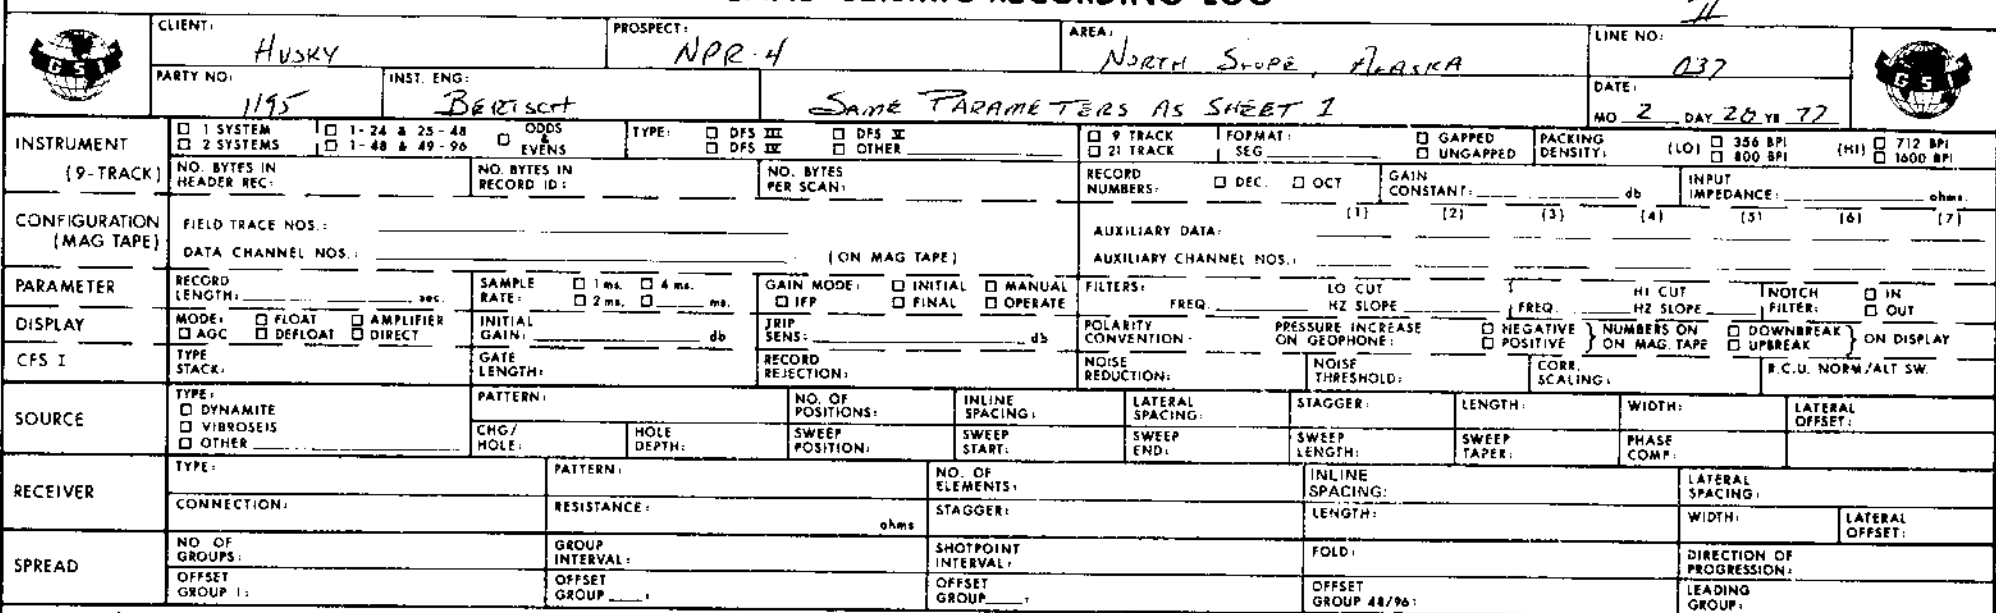 RECORDING LOG
CLIENT: HUSKY PROSPECT: NPR-4 AREA: NORTH SLOPE, ALASKA LINE NO: 037
GSI
PARTY NO: 1195 INST. ENG: BERTSCH SAME PARAMETERS AS SHEET 1 DATE: MO 2 DAY 28 YR 77
GSI
INSTRUMENT (9-TRACK)
☐ 1 SYSTEM ☐ 1-24 & 25-48 ☐ ODDS & EVENS TYPE: ☐ DFS III ☐ DFS V ☐ 9 TRACK FORMAT: ☐ GAPPED PACKING DENSITY: (LO) ☐ 356 BPI (HI) ☐ 712 BPI
☐ 2 SYSTEMS ☐ 1-48 & 49-96 ☐ DFS IV ☐ OTHER ☐ 21 TRACK SEG ☐ UNGAPPED ☐ 800 BPI ☐ 1600 BPI
NO. BYTES IN HEADER REC: NO. BYTES IN RECORD ID: NO. BYTES PER SCAN: RECORD NUMBERS: ☐ DEC. ☐ OCT GAIN CONSTANT: db INPUT IMPEDANCE: ohms.
CONFIGURATION (MAG TAPE)
(1) (2) (3) (4) (5) (6) (7)
FIELD TRACE NOS.: AUXILIARY DATA:
DATA CHANNEL NOS.: (ON MAG TAPE) AUXILIARY CHANNEL NOS.:
PARAMETER
RECORD LENGTH: sec. SAMPLE RATE: ☐ 1 ms. ☐ 4 ms. ☐ 2 ms. ☐ ms. GAIN MODE: ☐ INITIAL ☐ MANUAL ☐ IFP ☐ FINAL ☐ OPERATE FILTERS: LO CUT FREQ. HZ SLOPE HI CUT FREQ. HZ SLOPE NOTCH FILTER: ☐ IN ☐ OUT
DISPLAY
MODE: ☐ FLOAT ☐ AMPLIFIER ☐ AGC ☐ DEFLOAT ☐ DIRECT INITIAL GAIN: db TRIP SENS: db POLARITY CONVENTION: PRESSURE INCREASE ON GEOPHONE: ☐ NEGATIVE ☐ POSITIVE } NUMBERS ON ON MAG. TAPE ☐ DOWNBREAK ☐ UPBREAK } ON DISPLAY
CFS I
TYPE STACK: GATE LENGTH: RECORD REJECTION: NOISE REDUCTION: NOISE THRESHOLD: CORR. SCALING: R.C.U. NORM/ALT SW.
SOURCE
TYPE: ☐ DYNAMITE ☐ VIBROSEIS ☐ OTHER
PATTERN: NO. OF POSITIONS: INLINE SPACING: LATERAL SPACING: STAGGER: LENGTH: WIDTH: LATERAL OFFSET:
CHG/HOLE: HOLE DEPTH: SWEEP POSITION: SWEEP START: SWEEP END: SWEEP LENGTH: SWEEP TAPER: PHASE COMP:
RECEIVER
TYPE: PATTERN: NO. OF ELEMENTS: INLINE SPACING: LATERAL SPACING:
CONNECTION: RESISTANCE: ohms STAGGER: LENGTH: WIDTH: LATERAL OFFSET:
SPREAD
NO OF GROUPS: GROUP INTERVAL: SHOTPOINT INTERVAL: FOLD: DIRECTION OF PROGRESSION:
OFFSET GROUP 1: OFFSET GROUP ____: OFFSET GROUP ____: OFFSET GROUP 48/96: LEADING GROUP: